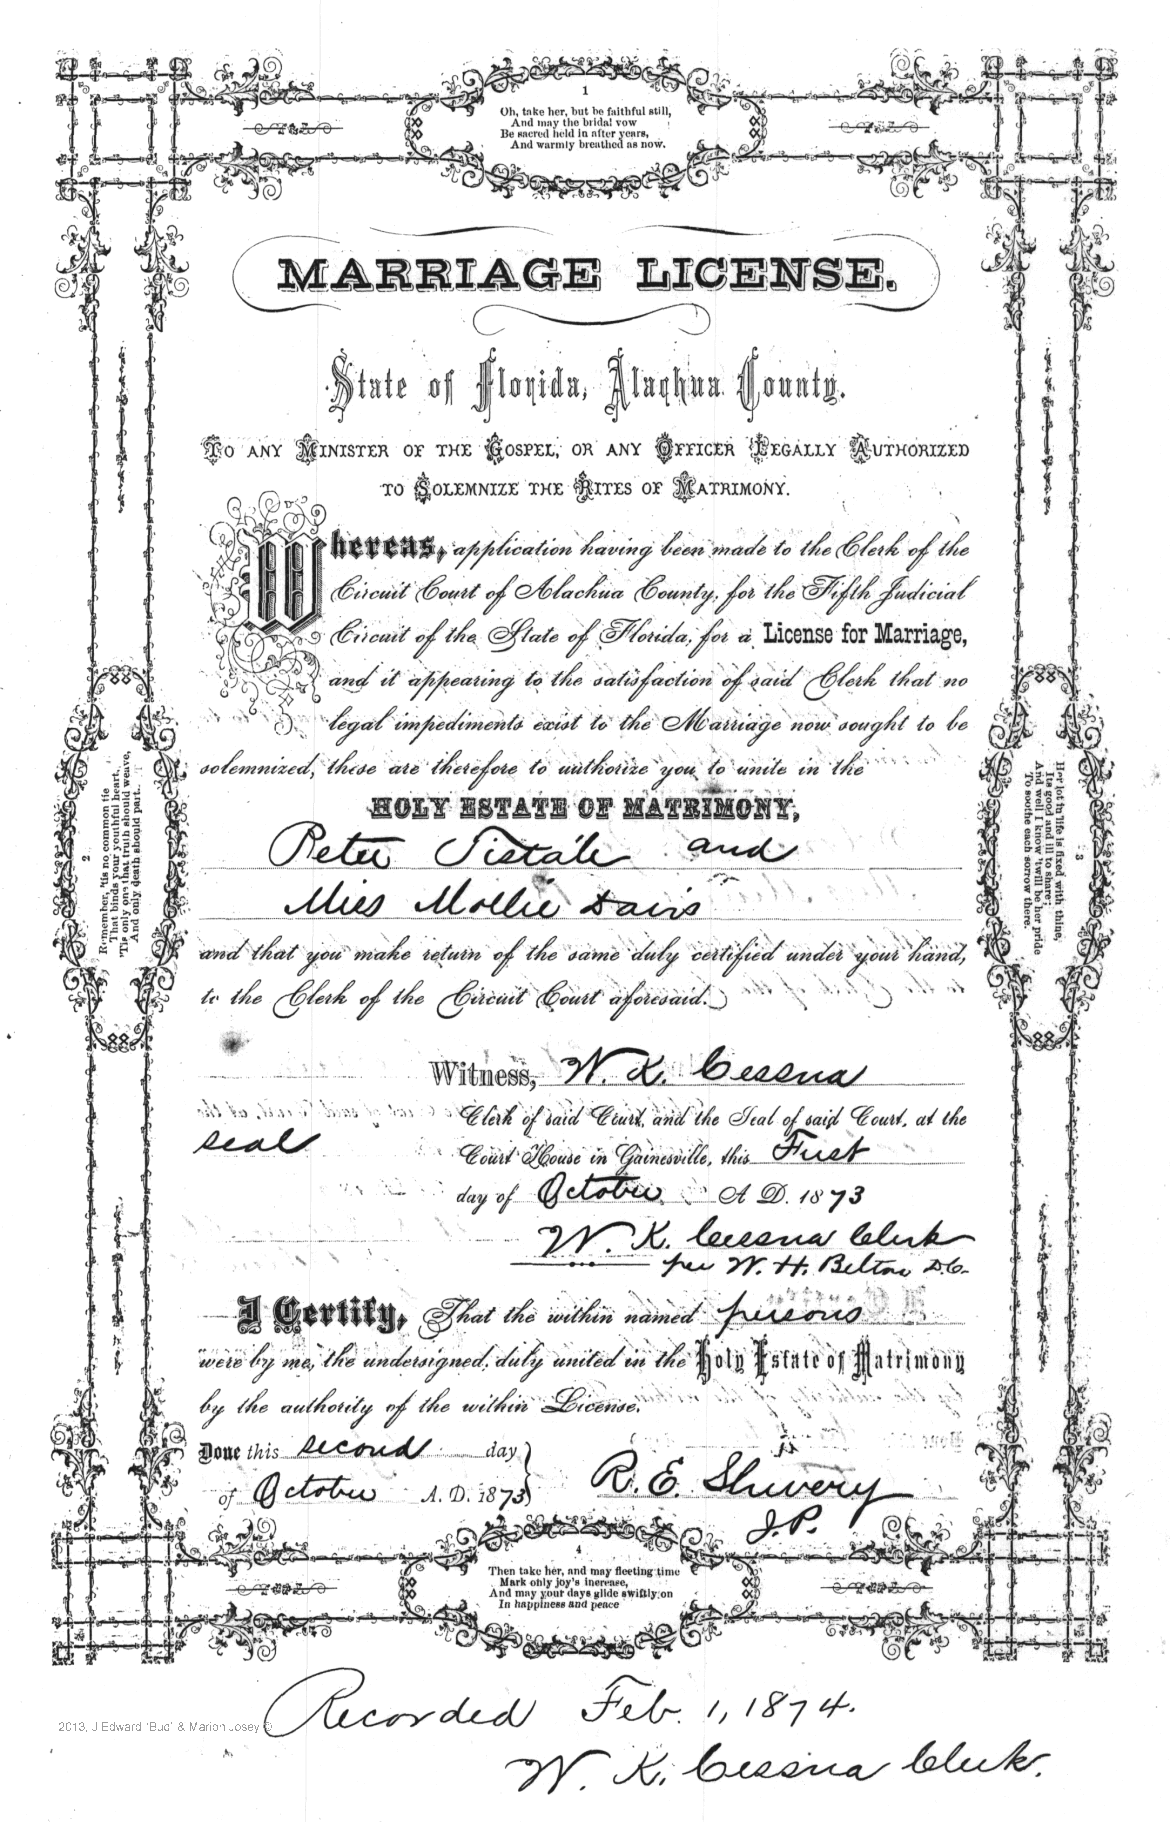 1
Oh, take her, but be faithful still,
And may the bridal vow
Be sacred held in after years,
And warmly breathed as now.
MARRIAGE LICENSE.
State of Florida, Alachua County.
TO ANY MINISTER OF THE GOSPEL, OR ANY OFFICER LEGALLY AUTHORIZED
TO SOLEMNIZE THE RITES OF MATRIMONY.
Whereas, application having been made to the Clerk of the
Circuit Court of Alachua County, for the Fifth Judicial
Circuit of the State of Florida, for a License for Marriage,
and it appearing to the satisfaction of said Clerk that no
legal impediments exist to the Marriage now sought to be
solemnized, these are therefore to authorize you to unite in the
HOLY ESTATE OF MATRIMONY,
Peter Sistale and
Miss Mollie Davis
and that you make return of the same duly certified under your hand,
to the Clerk of the Circuit Court aforesaid.
2
Remember, 'tis no common tie
That binds your youthful heart,
'Tis only one that truth should weave,
And only death should part.
3
Her lot in life is fixed with thine,
Its good and ill to share;
And well I know 'twill be her pride
To soothe each sorrow there.
Witness, W. K. Cessna
Clerk of said Court, and the Seal of said Court, at the
seal
Court House in Gainesville, this First
day of October A D. 1873
W. K. Cessna Clerk
per W. H. Belton D.C.
I Certify, That the within named persons
were by me, the undersigned, duly united in the Holy Estate of Matrimony
by the authority of the within License.
Done this second day
of October A. D. 1873
R. E. Shivery
J.P.
4
Then take her, and may fleeting time
Mark only joy's increase,
And may your days glide swiftly on
In happiness and peace
Recorded Feb. 1, 1874.
W. K. Cessna Clerk.
2013, J Edward "Bud" & Marion Josey ©